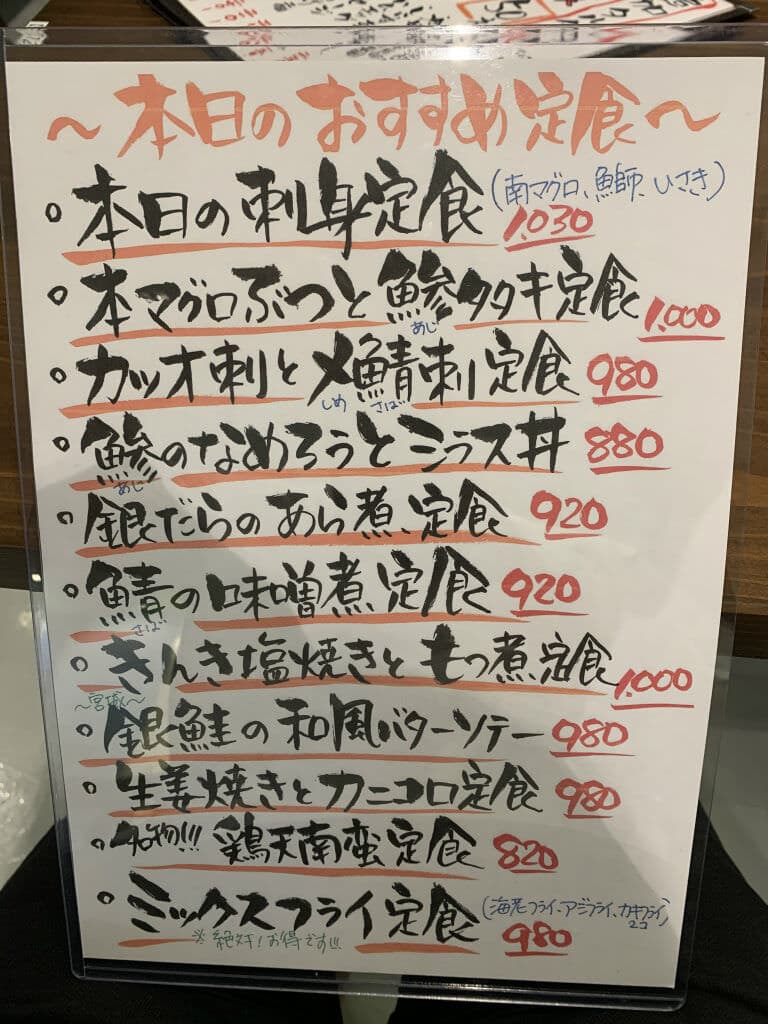 ～本日のおすすめ定食～
。本日の刺身定食 (南マグロ、魚師、いさき)
1,030
。本マグロぶつと鯵タタキ定食 1,000
あじ
。カツオ刺と〆鯖刺定食 980
しめ さば
。鯵のなめろうとシラス丼 880
あじ
。銀だらのあら煮定食 920
。鯖の味噌煮定食 920
さば
。きんき塩焼きともつ煮定食 1,000
～宮城～
。銀鮭の和風バターソテー 980
。生姜焼きとカニコロ定食 980
。名物!!! 鶏天南蛮定食 820
。ミックスフライ定食 (海老フライ、アジフライ、カキフライ)
2コ
980
※絶対!お得です!!!